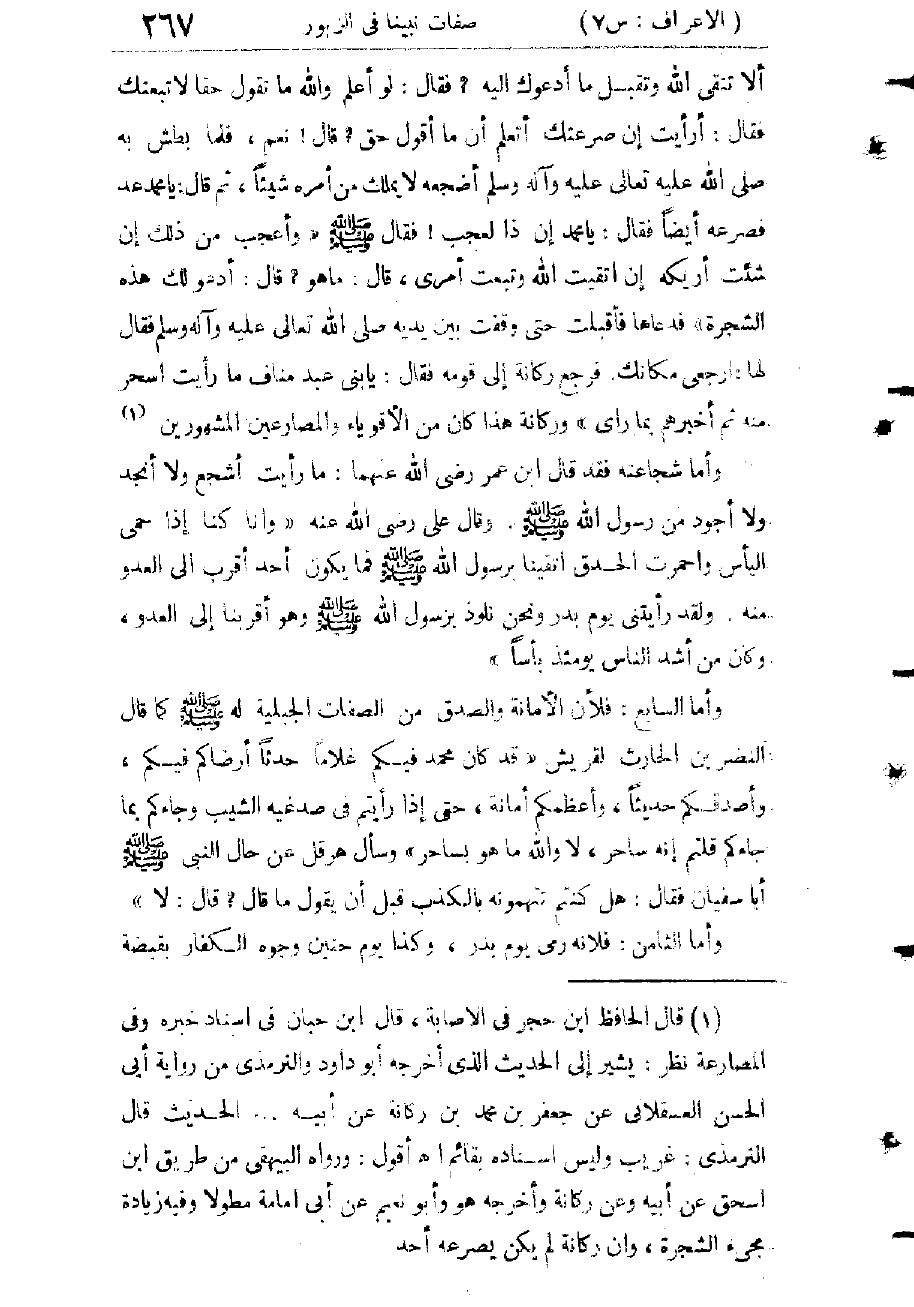 (الاعراف: س٧) صفات نبينا فى الزبور ٢٦٧
ألا تتقى الله وتقبل ما أدعوك اليه ؟ فقال : لو أعلم والله ما تقول حقا لاتبعتك
فقال : أرأيت إن صرعتك أتعلم أن ما أقول حق ؟ قال ! نعم ، فلما بطش به
صلى الله عليه تعالى عليه وآله وسلم أضجعه لا يملك من أمره شيئاً ، ثم قال : يامحمد عد
فصرعه أيضاً فقال : يامحمد إن ذا لعجب ! فقال ﷺ « وأعجب من ذلك إن
شئت أريكه إن اتقيت الله وتبعت أمرى ، قال : ماهو ؟ قال : أدعو لك هذه
الشجرة » فدعاها فأقبلت حتى وقفت بين يديه صلى الله تعالى عليه وآله وسلم فقال
لها : ارجعى مكانك. فرجع ركانة إلى قومه فقال : يابنى عبد مناف ما رأيت اسحر
منه ثم أخبرهم بما رأى » وركانة هذا كان من الأقوياء والمصارعين المشهورين (١)
وأما شجاعته فقد قال ابن عمر رضى الله عنهما : ما رأيت أشجع ولا أنجد
ولا أجود من رسول الله ﷺ . وقال على رضى الله عنه « وانا كنا إذا حمى
البأس واحمرت الحدق اتقينا برسول الله ﷺ فما يكون أحد أقرب الى العدو
منه . ولقد رأيتنى يوم بدر ونحن نلوذ برسول الله ﷺ وهو أقربنا إلى العدو ،
وكان من أشد الناس يومئذ بأساً »
وأما السابع : فلأن الأمانة والصدق من الصفات الجبلية له ﷺ كما قال
النضر بن الحارث لقريش « قد كان محمد فيكم غلاماً حدثاً أرضاكم فيكم ،
وأصدقكم حديثاً ، وأعظمكم أمانة ، حتى إذا رأيتم فى صدغيه الشيب وجاءكم بما
جاءكم قلتم إنه ساحر ، لا والله ما هو بساحر » وسأل هرقل عن حال النبى ﷺ
أبا سفيان فقال : هل كنتم تتهمونه بالكذب قبل أن يقول ما قال ؟ قال : لا »
وأما الثامن : فلانه رمى يوم بدر ، وكذا يوم حنين وجوه الكفار بقبضة
(١) قال الحافظ ابن حجر فى الاصابة ، قال ابن حبان فى اسناد خبره وفى
المصارعة نظر : يشير إلى الحديث الذى أخرجه أبو داود والترمذى من رواية أبى
الحسن العسقلانى عن جعفر بن محمد بن ركانة عن أبيه ... الحديث قال
الترمذى : غريب وليس اسناده بقائم ا ه أقول : ورواه البيهقى من طريق ابن
اسحق عن أبيه وعن ركانة وأخرجه هو وأبو نعيم عن أبى امامة مطولا وفيه زيادة
مجىء الشجرة ، وان ركانة لم يكن يصرعه أحد